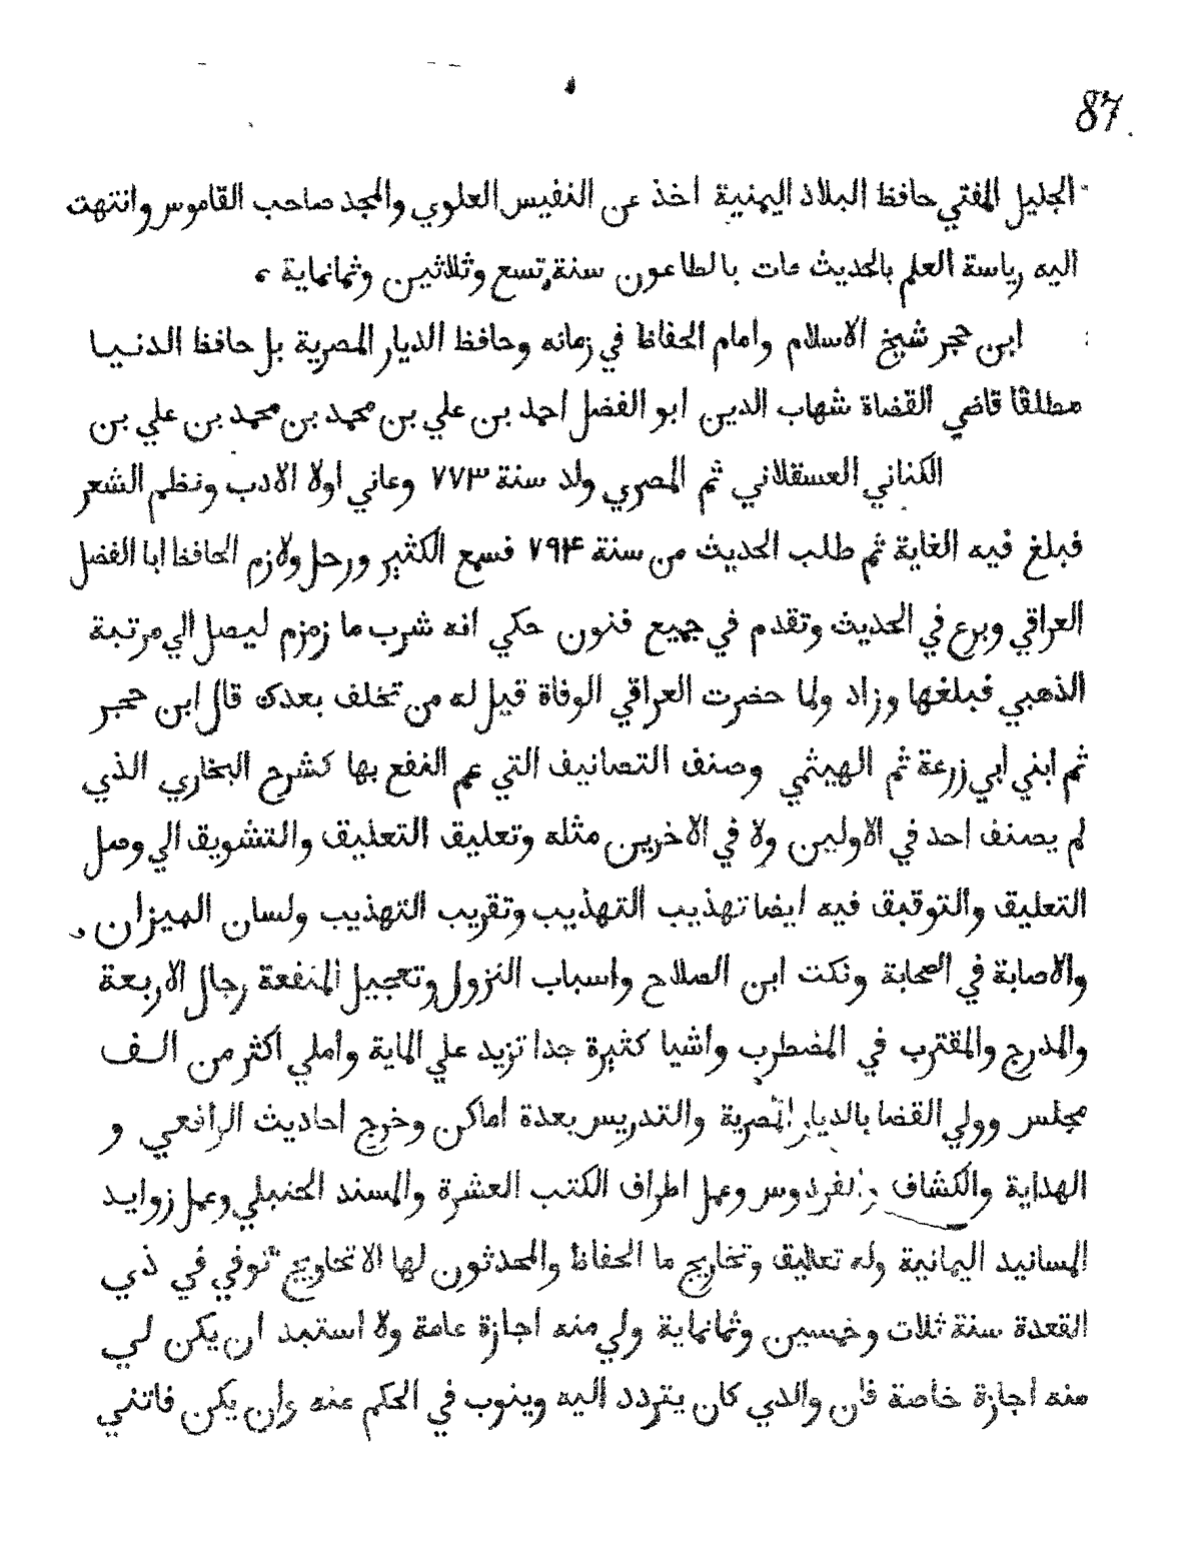 87
الجليل المفتي حافظ البلاد اليمنية اخذ عن النفيس العلوي والمجد صاحب القاموس وانتهت
اليه رياسة العلم بالحديث مات بالطاعون سنة تسع وثلاثين وثمانماية ،
ابن حجر شيخ الاسلام وامام الحفاظ في زمانه وحافظ الديار المصرية بل حافظ الدنيا
مطلقًا قاضي القضاة شهاب الدين ابو الفضل احمد بن علي بن محمد بن محمد بن علي بن
الكناني العسقلاني ثم المصري ولد سنة ٧٧٣ وعاني اولا الادب ونظم الشعر
فبلغ فيه الغاية ثم طلب الحديث من سنة ٧٩۴ فسمع الكثير ورحل ولازم الحافظ ابا الفضل
العراقي وبرع في الحديث وتقدم في جميع فنون حكي انه شرب ما زمزم ليصل الي مرتبة
الذهبي فبلغها وزاد ولما حضرت العراقي الوفاة قيل له من تخلف بعدك قال ابن حجر
ثم ابني ابي زرعة ثم الهيثمي وصنف التصانيف التي عم النفع بها كشرح البخاري الذي
لم يصنف احد في الاولين ولا في الاخرين مثله وتعليق التعليق والتشويق الي وصل
التعليق والتوقيق فيه ايضا تهذيب التهذيب وتقريب التهذيب ولسان الميزان
والاصابة في الصحابة ونكت ابن الصلاح واسباب النزول وتعجيل المنفعة رجال الاربعة
والمدرج والمقترب في المضطرب واشيا كثيرة جدا تزيد علي الماية واملي اكثر من الف
مجلس وولي القضا بالديار المصرية والتدريس بعدة اماكن وخرج احاديث الرافعي و
الهداية والكشاف والفردوس وعمل اطراف الكتب العشرة والمسند الحنبلي وعمل زوايد
المسانيد اليمانية وله تعاليق وتخاريج ما الحفاظ والمحدثون لها الا تحاويج توفي في ذي
القعدة سنة ثلات وخمسين وثمانماية ولي منه اجازة عامة ولا استبد ان يكن لي
منه اجازة خاصة فان والدي كان يتردد اليه وينوب في الحكم عنه وان يكن فاتني